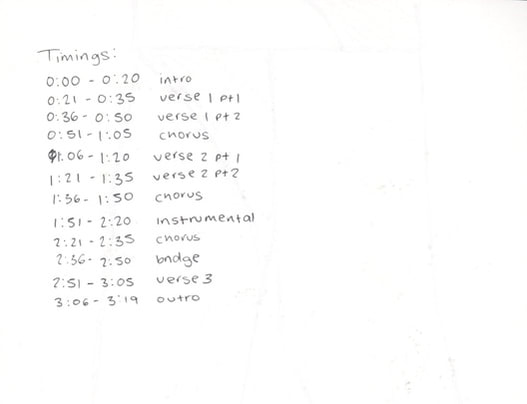 Timings:
0:00 - 0:20 intro
0:21 - 0:35 verse 1 pt1
0:36 - 0:50 verse 1 pt 2
0:51 - 1:05 chorus
1:06 - 1:20 verse 2 pt 1
1:21 - 1:35 verse 2 pt2
1:36 - 1:50 chorus
1:51 - 2:20 instrumental
2:21 - 2:35 chorus
2:36 - 2:50 bridge
2:51 - 3:05 verse 3
3:06 - 3:19 outro